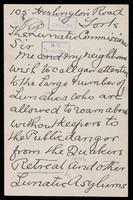 105 Heslington Road
York
The Lunatic Commissioners
Sir
Me and my neighbours
wish to call your attention
to the large number of
Lunatics who are
allowed to roam about
without keepers to
the Public danger
from the Quakers
Retreat and other
Lunatic Asylums